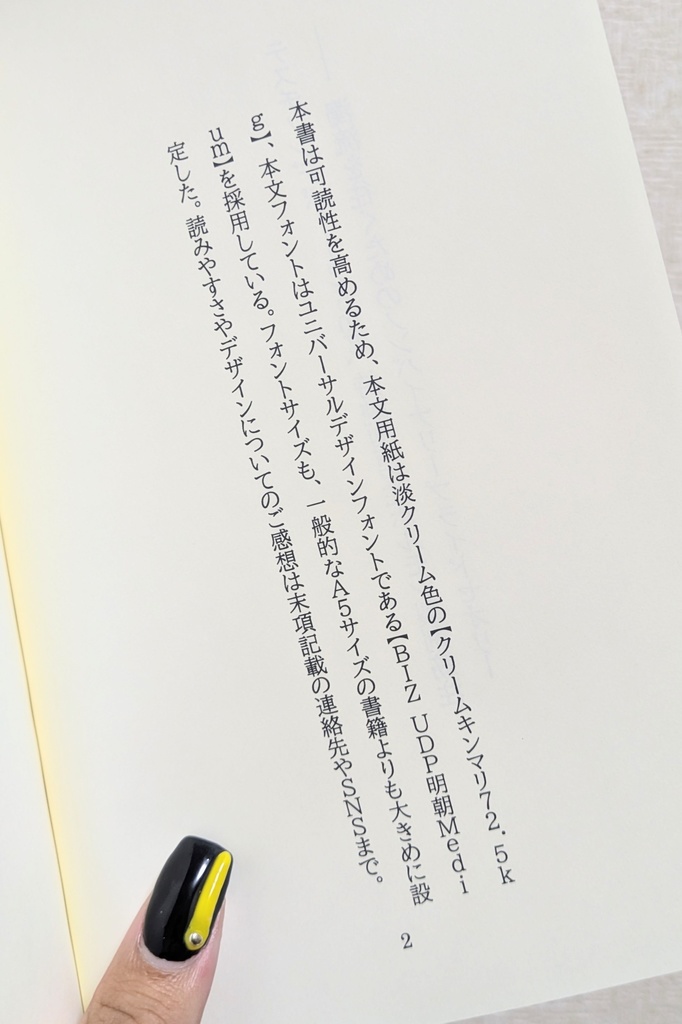 本書は可読性を高めるため、本文用紙は淡クリーム色の【クリームキンマリ72.5k
g】、本文フォントはユニバーサルデザインフォントである【BIZ UDP明朝Medi
um】を採用している。フォントサイズも、一般的なA5サイズの書籍よりも大きめに設
定した。読みやすさやデザインについてのご感想は末項記載の連絡先やSNSまで。
2